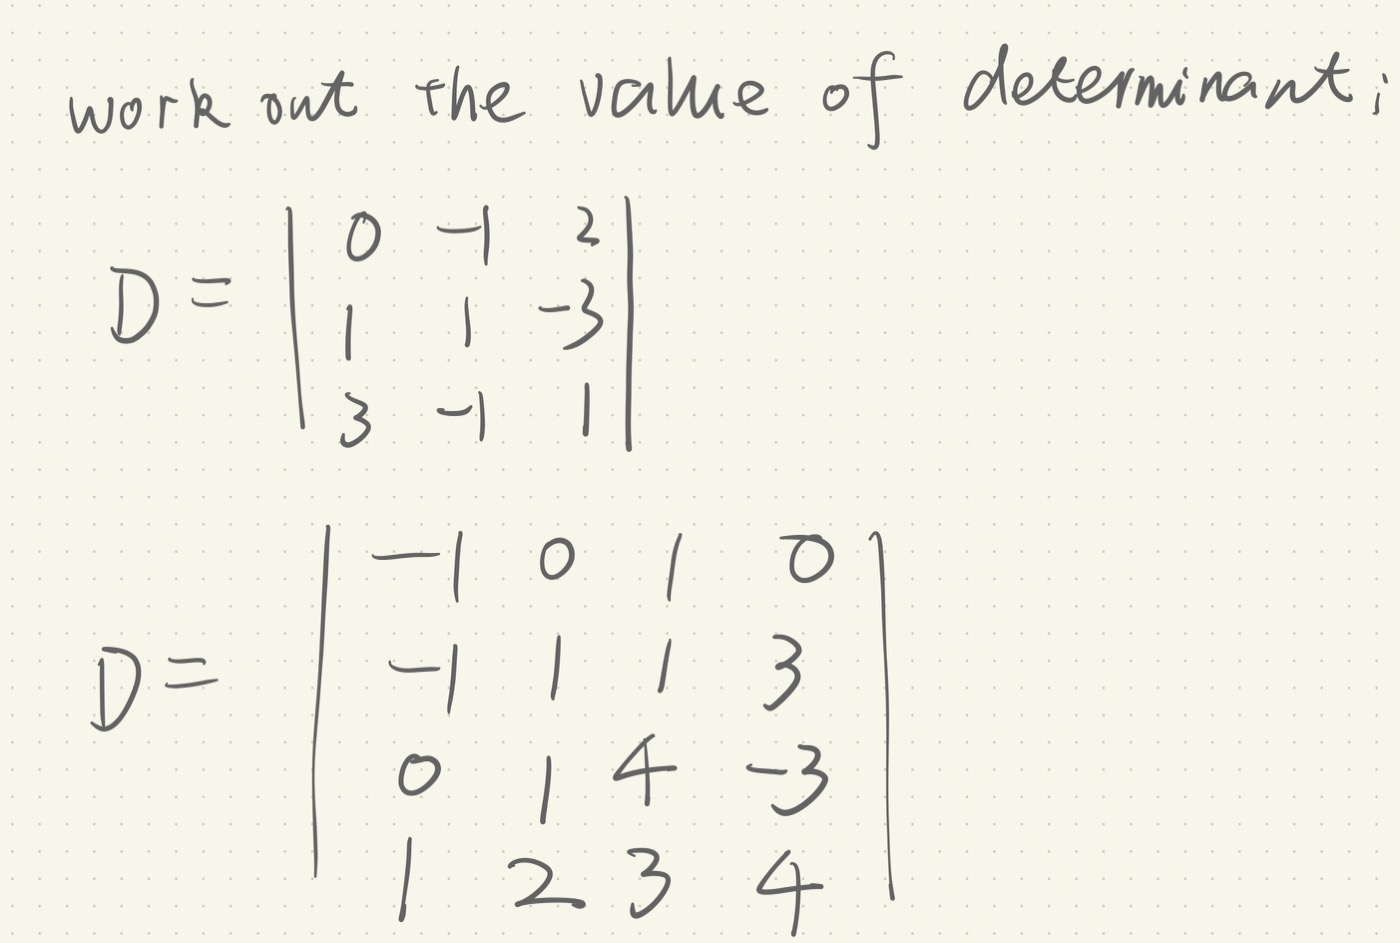 work out the value of determinant;
D = | 0 -1 2 |
| 1 1 -3 |
| 3 -1 1 |
D = | -1 0 1 0 |
| -1 1 1 3 |
| 0 1 4 -3 |
| 1 2 3 4 |